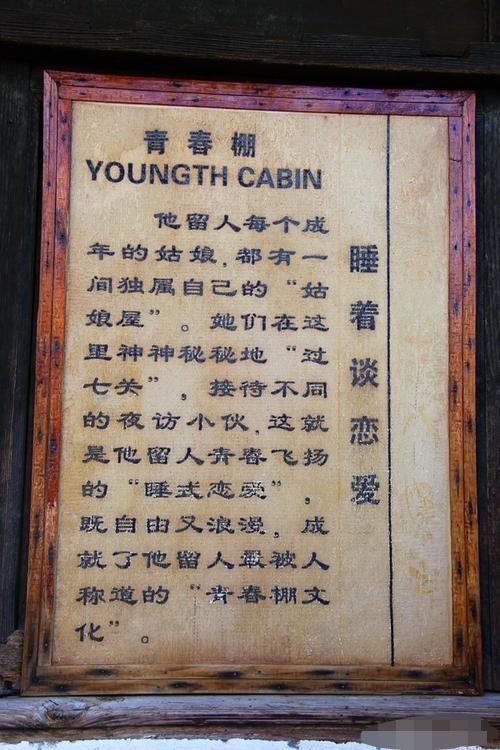 青春棚
YOUNGTH CABIN
他留人每个成
年的姑娘，都有一
间独属自己的“姑
娘屋”。她们在这
里神神秘秘地“过
七关”，接待不同
的夜访小伙，这就
是他留人青春飞扬
的“睡式恋爱”，
既自由又浪漫，成
就了他留人最被人
称道的“青春棚文
化”。
睡着谈恋爱